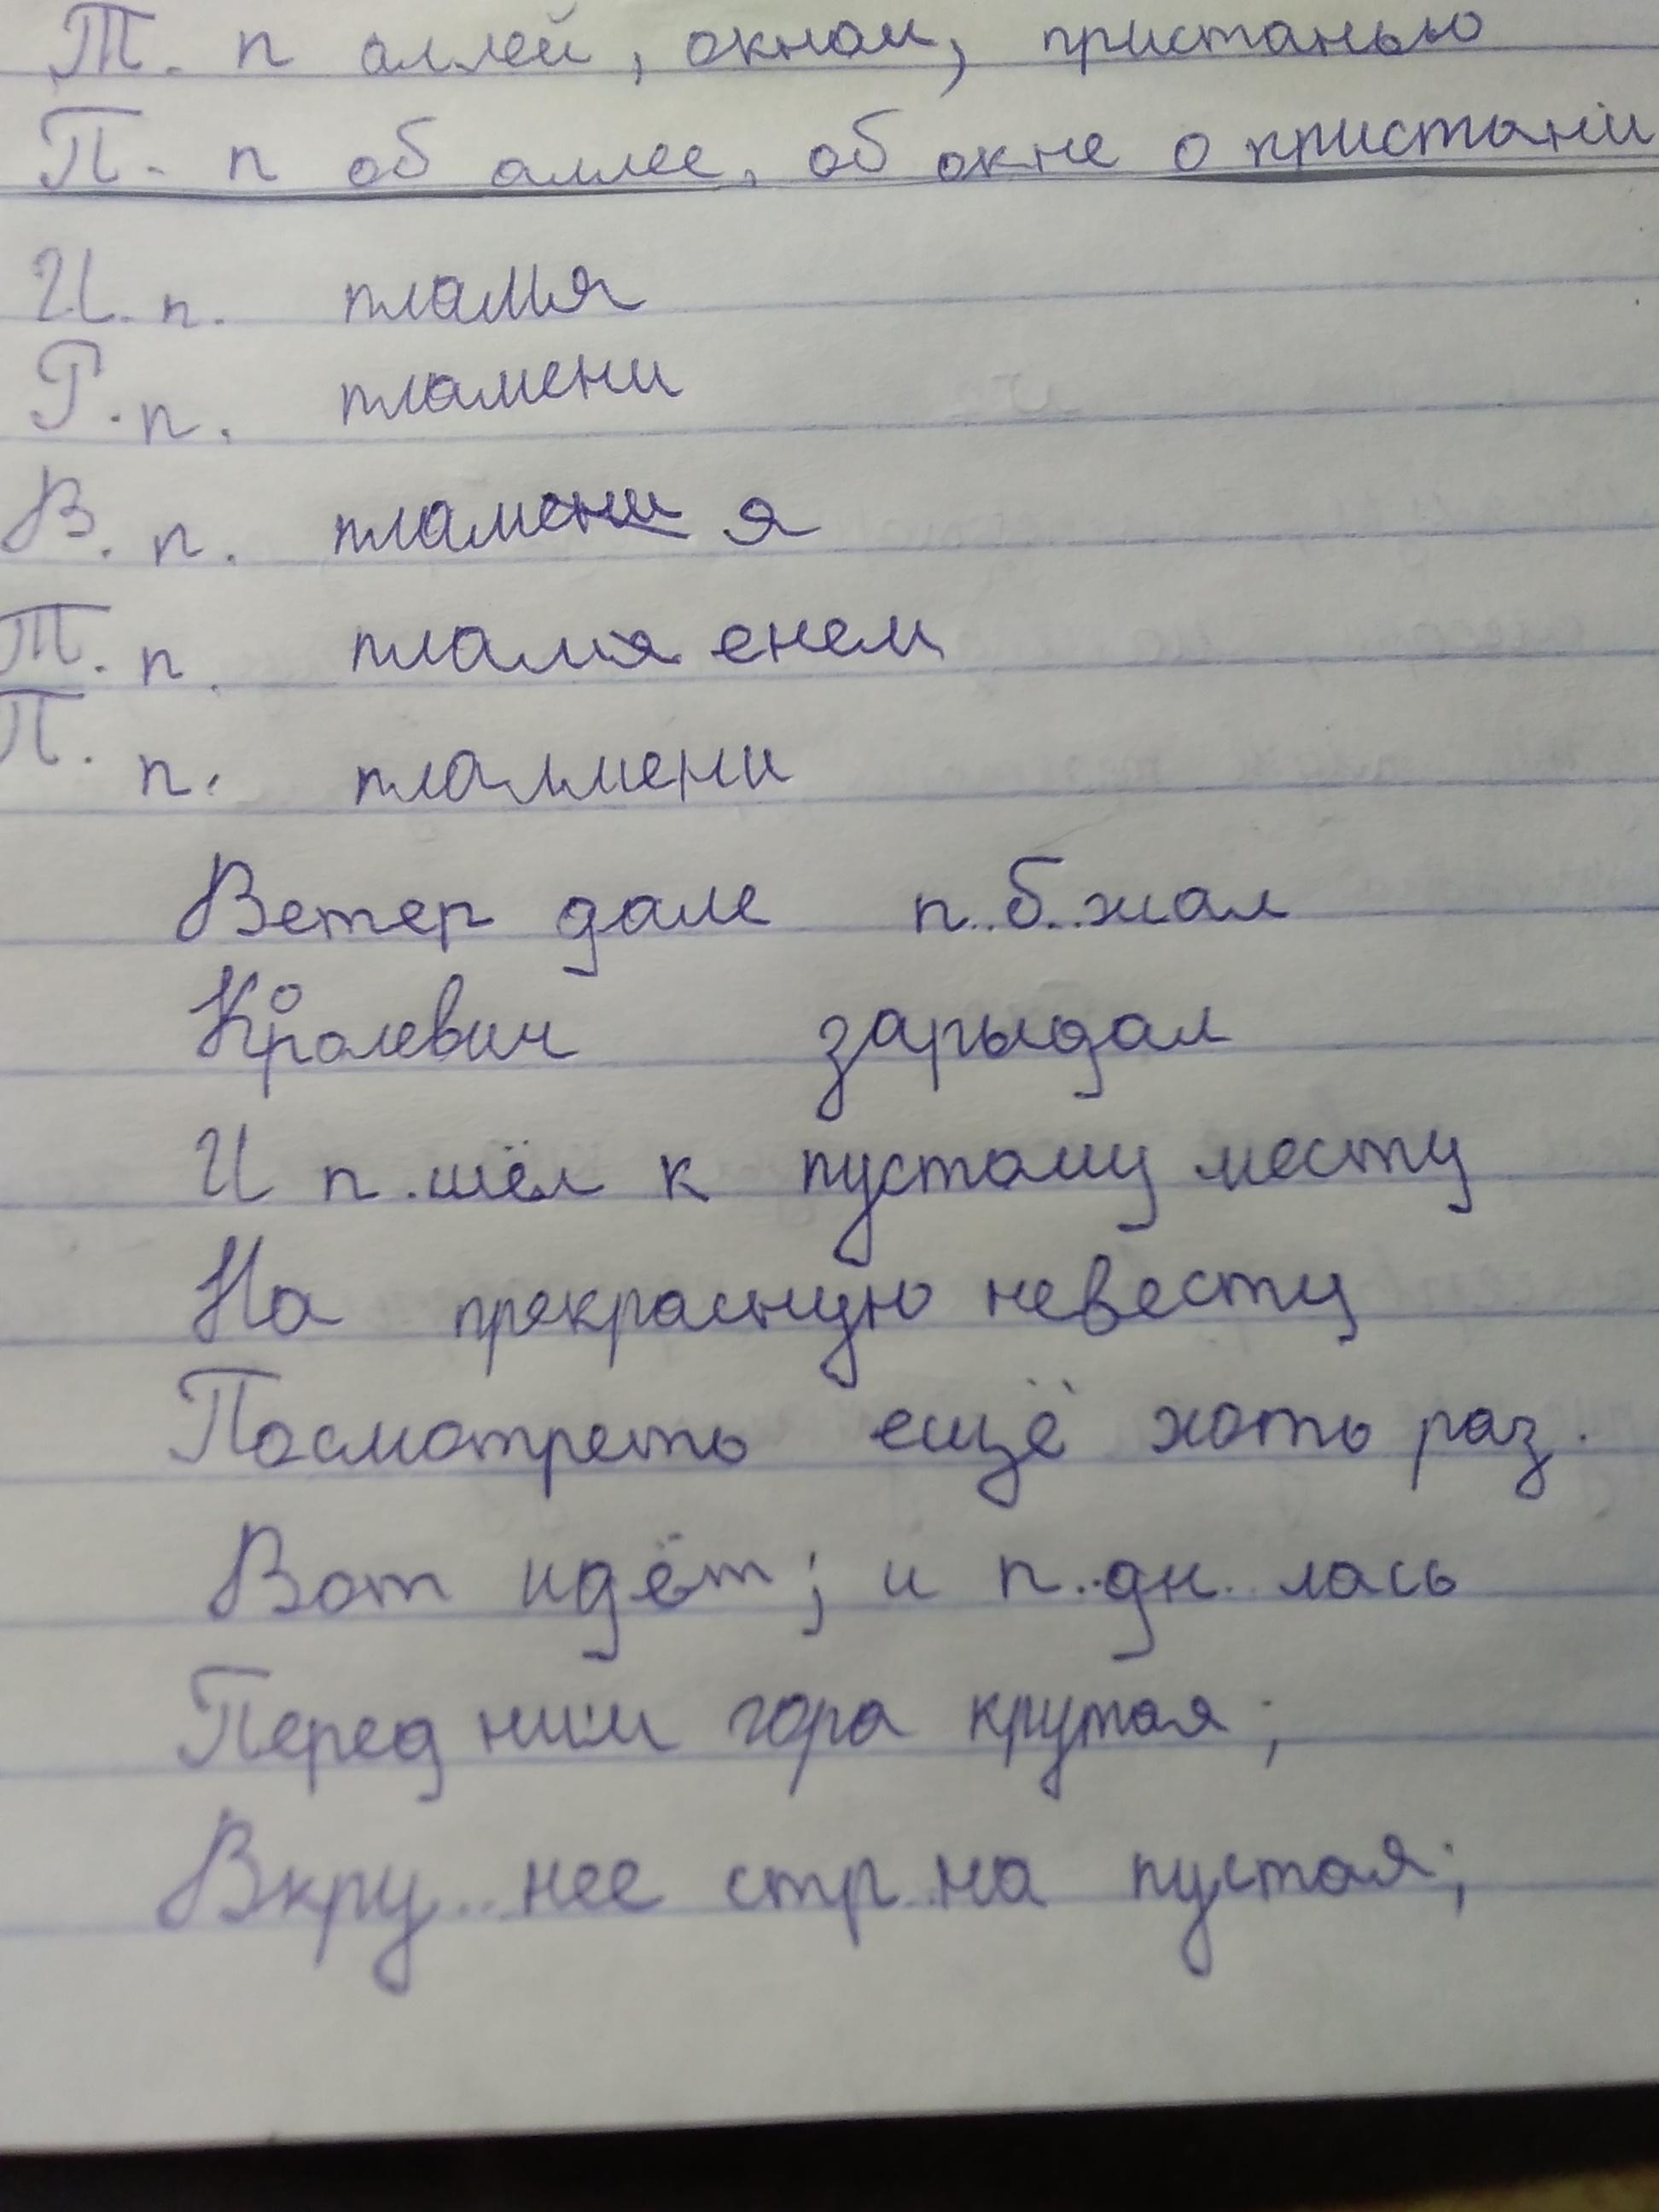 Т. п аллей, окном, пристанью
П. п об аллее, об окне о пристани
И. п. пламя
Р. п. пламени
В. п. пламени я
Т. п. пламя енем
П. п. пламмени
Ветер дале п..б..жал
Королевич зарыдал
И п..шёл к пустому месту
На прекрасную невесту
Посмотреть ещё хоть раз.
Вот идёт; и п..дн..лась
Перед ним гора крутая;
Вкру.. нее стр..на пустая;